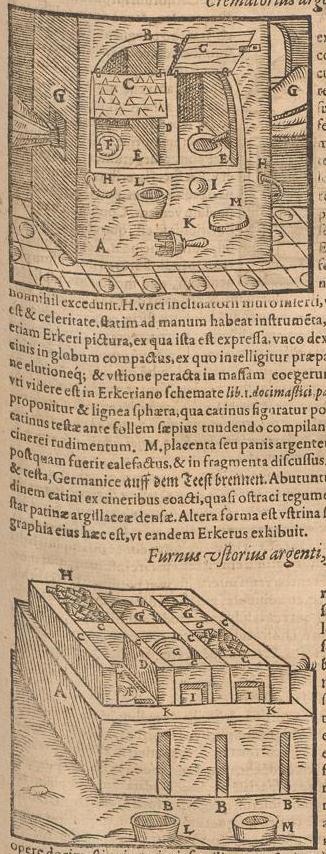 Crematorius arge
B
C
G
C
G
D
F
F
E
E
H
L
I
H
M
K
A
nonnihil excedunt. H. vnci inclinatorii muro inserti,
est & celeritate, statim ad manum habeat instrumēta,
etiam Erkeri pictura, ex qua ista est expressa, vnco dex
cinis in globum compactus, ex quo intelligitur præpa
ne elutioneq; & vstione peracta in massam coegerun
vti videre est in Erkeriano schemate lib. 1. docimastici, pa
proponitur & lignea sphæra, qua catinus figuratur po
catinus testæ ante follem sæpius tundendo compilan
cinerei rudimentum. M. placenta seu panis argente
postquam fuerit calefactus, & in fragmenta discussus
& testa, Germanice auff dem Teest brennen. Abutuntu
dinem catini ex cineribus coacti, quasi ostraci tegume
star patinæ argillaceæ densæ. Altera forma est vstrina s
graphia eius hæc est, vt eandem Erkerus exhibuit.
Furnus vstorius argenti,
H
C
G
C
C
C
G
C
D
C
G
A
I
I
K
K
B
B
B
L
M